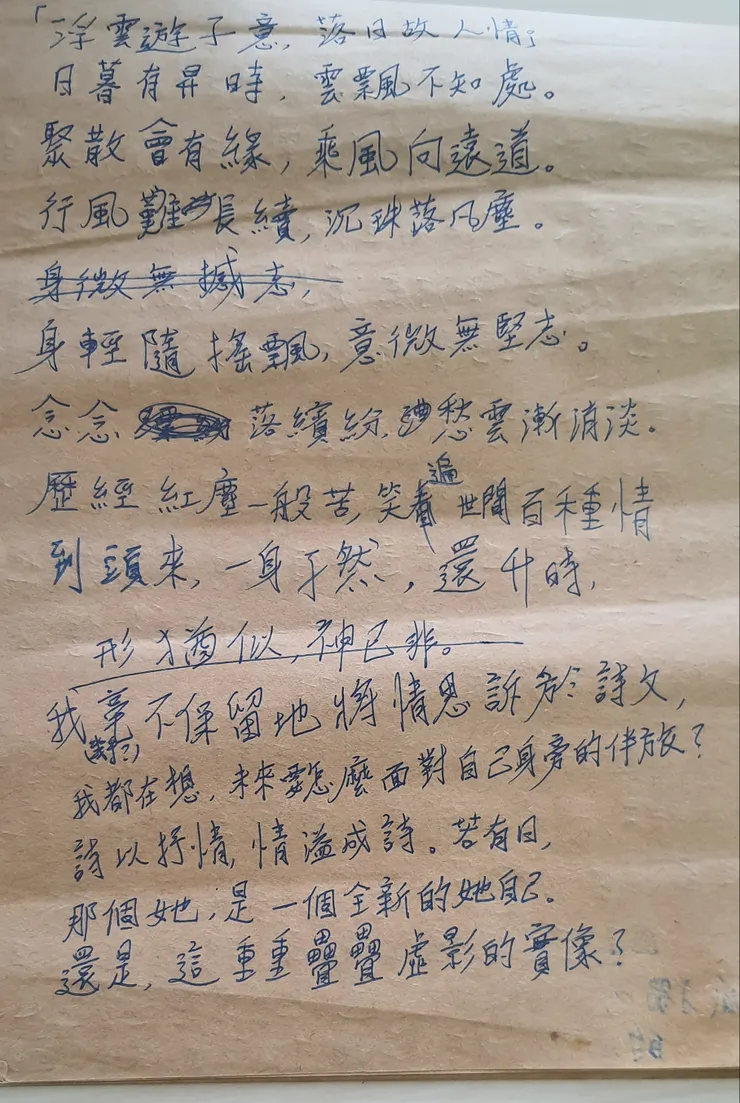 「浮雲遊子意，落日故人情」
日暮有昇時，雲飄不知處。
聚散會有緣，乘風向遠道。
行風難長續，沉珠落凡塵。
身微無撼志，
身輕隨搖飄，意微無堅志。
念念落繽紛，愁雲漸消淡。
歷經紅塵一般苦，笑看遍世間百種情
到頭來，一身孑然，還升時，
形才猶似，神已非。
我竟不保留地將情思訴於詩文，
我都在想，未來要怎麼面對自己身旁的伴旅？
詩以抒情，情溢成詩。若有日，
那個她，是一個全新的她自己。
還是，這重重疊疊虛影的實像？